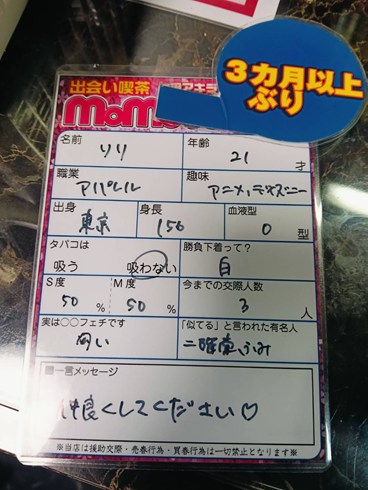 3カ月以上
ぶり
出会い喫茶
アキラ
moMo
名前 リリ 年齢 21 才
職業 アパレル 趣味 アニメ、ディズニー
出身 東京 身長 156 血液型 O 型
タバコは 吸う 吸わない 勝負下着って? 白
S度 50 % M度 50 % 今までの交際人数 3 人
実は○○フェチです 匂い 「似てる」と言われた有名人 二階堂ふみ
一言メッセージ
仲良くしてください♡
※当店は援助交際・売春行為・買春行為は一切禁止となります※